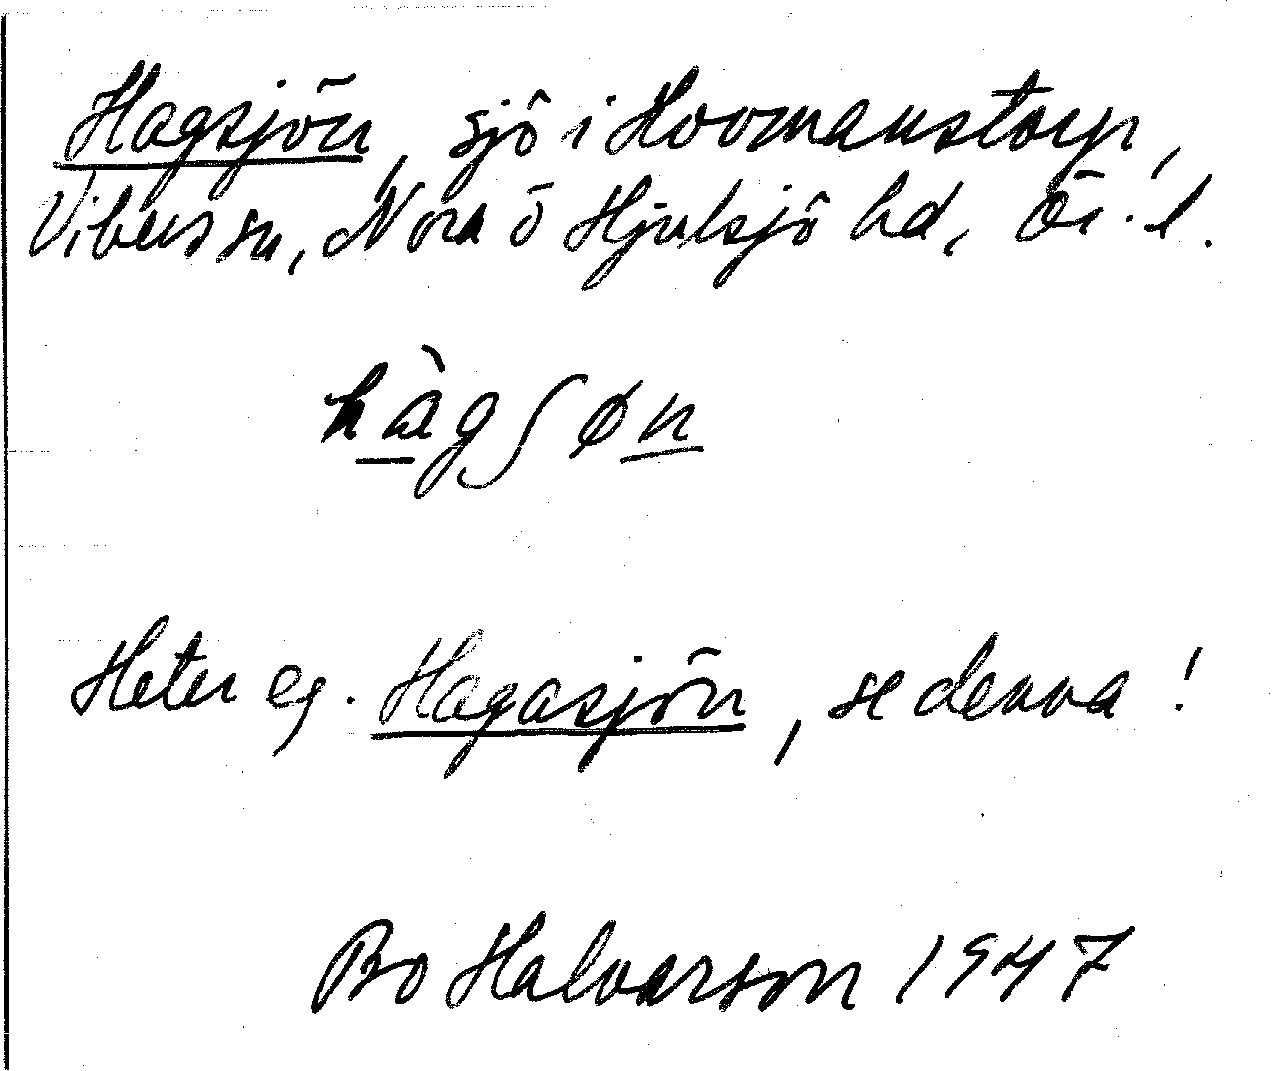 Hagsjön, sjö i Hovmanstorp,
Vibers sn, Nora o Hjulsjö hd, Ör. l.
hàgʃøn
Heter eg. Hagasjön, se denna!
Bo Halvarson 1947